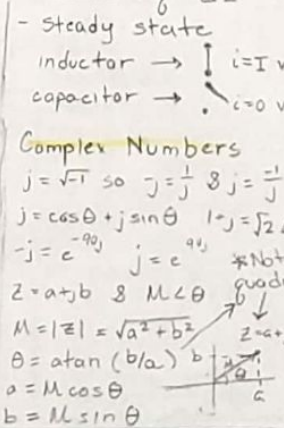 - steady state
inductor → i=I
capacitor → i=0
Complex Numbers
j = √-1 so -j = 1/j & j = -1/j
j = cosθ + j sinθ 1-j = √2
-j = e^-90j j = e^90j *Not
z = a+jb & M∠θ quad
M = |z| = √a²+b² z=a+
θ = atan (b/a) b
a = M cosθ a
b = M sinθ